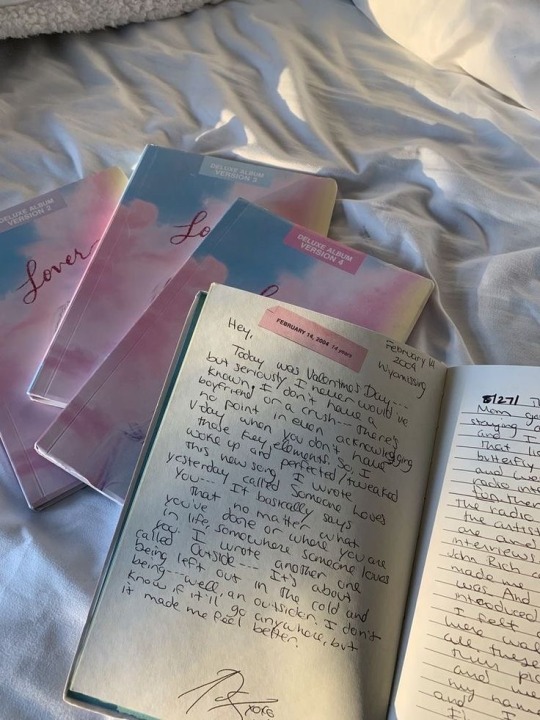 DELUXE ALBUM
VERSION 2
Lover
DELUXE ALBUM
VERSION 3
Lo
DELUXE ALBUM
VERSION 4
FEBRUARY 14, 2004 14 years
February 14
2004
Wyomissing
Hey,
Today was Valentine's Day---
but seriously I never would've
known, I don't have a
boyfriend or a crush-- there's
no point in even acknowledging
V'day when you don't have
those key elements. So, I
woke up and perfected/tweaked
this new song I wrote
yesterday called Someone Loves
You--- It basically says
That no matter what
you've done or where you are
in life, somewhere someone loves
you. I wrote another one
called Outside---- It's about
being left out in the cold and
being---well, an outsider. I don't
know if it'll go anywhere, but
it made me feel better.
8/27/
Mom
staying
and
That
butterfly
and we
radio in
The radio
the artist
me and
interviews
John Rich
made me
was. And
introduced
I felt
were wa
all these
This pla
and we
my name
and
I